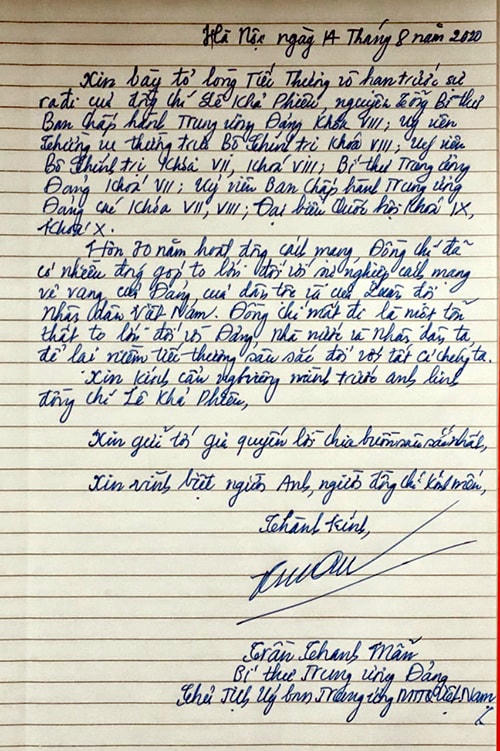 Hà Nội, ngày 14 Tháng 8 năm 2020
Xin bày tỏ lòng Tiếc Thương vô hạn trước sự
ra đi của đồng chí Lê Khả Phiêu, nguyên Tổng Bí thư
Ban Chấp hành Trung ương Đảng Khóa VIII; Uỷ viên
Thường vụ thường trực Bộ Chính trị Khóa VIII; Uỷ viên
Bộ Chính trị Khóa VII, Khoá VIII; Bí thư Trung ương
Đảng Khoá VII; Uỷ viên Ban Chấp hành Trung ương
Đảng các Khóa VII, VIII; Đại biểu Quốc hội Khoá IX,
Khoá X.
Hơn 70 năm hoạt động cách mạng, Đồng chí đã
có nhiều đóng góp to lớn đối với sự nghiệp cách mạng
vẻ vang của Đảng, của dân tộc và của Quân đội
Nhân dân Việt Nam. Đồng chí mất đi là một tổn
thất to lớn đối với Đảng Nhà nước và Nhân dân ta,
để lại niềm tiếc thương sâu sắc đối với tất cả chúng ta.
Xin Kính cẩn nghiêng mình trước anh linh
đồng chí Lê Khả Phiêu,
Xin gửi tới gia quyến lời chia buồn sâu sắc nhất,
Xin vĩnh biệt người Anh, người đồng chí kính mến,
Thành kính,
Trần Thanh Mẫn
Bí thư Trung ương Đảng
Chủ Tịch Uỷ ban Trung ương MTTQ Việt Nam